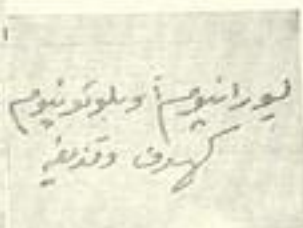 ليورانيوم أو بلوتونيوم
كهدف وقذيفة